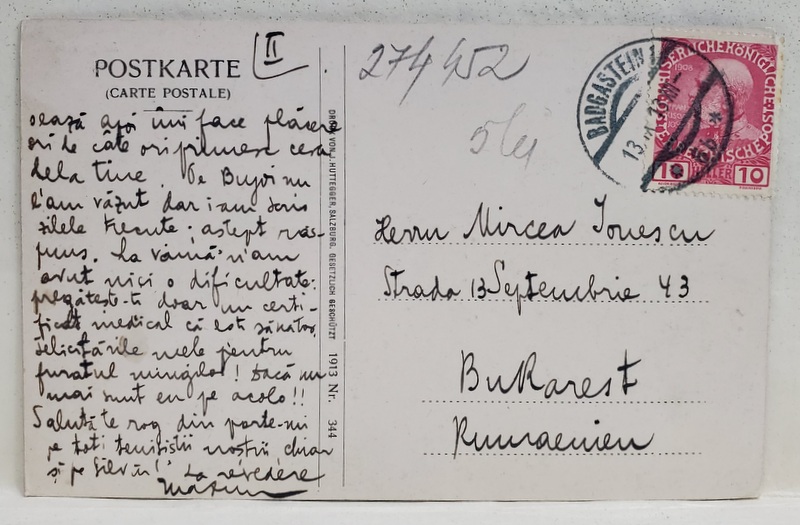 II
POSTKARTE
(CARTE POSTALE)
ează apoi îmi face plăcere
ori de câte ori primesc ceva
dela tine. Pe Bujoi nu
l'am văzut dar i-am scris
zilele trecute; aștept răs-
puns. La vamă n'am
avut nici o dificultate:
pregătește-te doar un certi-
ficat medical că ești sănătos.
Felicitările mele pentru
furatul mingilor! Dacă nu
mai sunt eu pe acolo!!
Salută te rog din parte-mi
pe toți tenisiștii noștri chiar
și pe Silvan! La revedere
DRUCK VON J. HUTTEGGER, SALZBURG. GESETZLICH GESCHÜTZT 1913 Nr. 344
274 452
5 lei
BADGASTEIN 1
13
KAISERLICHE KÖNIGLICHE ÖSTERREICHISCHE POST
1908
10 HELLER 10
Herrn Mircea Ionescu
Strada 13 Septembrie 43
Bukarest
Rumaenien